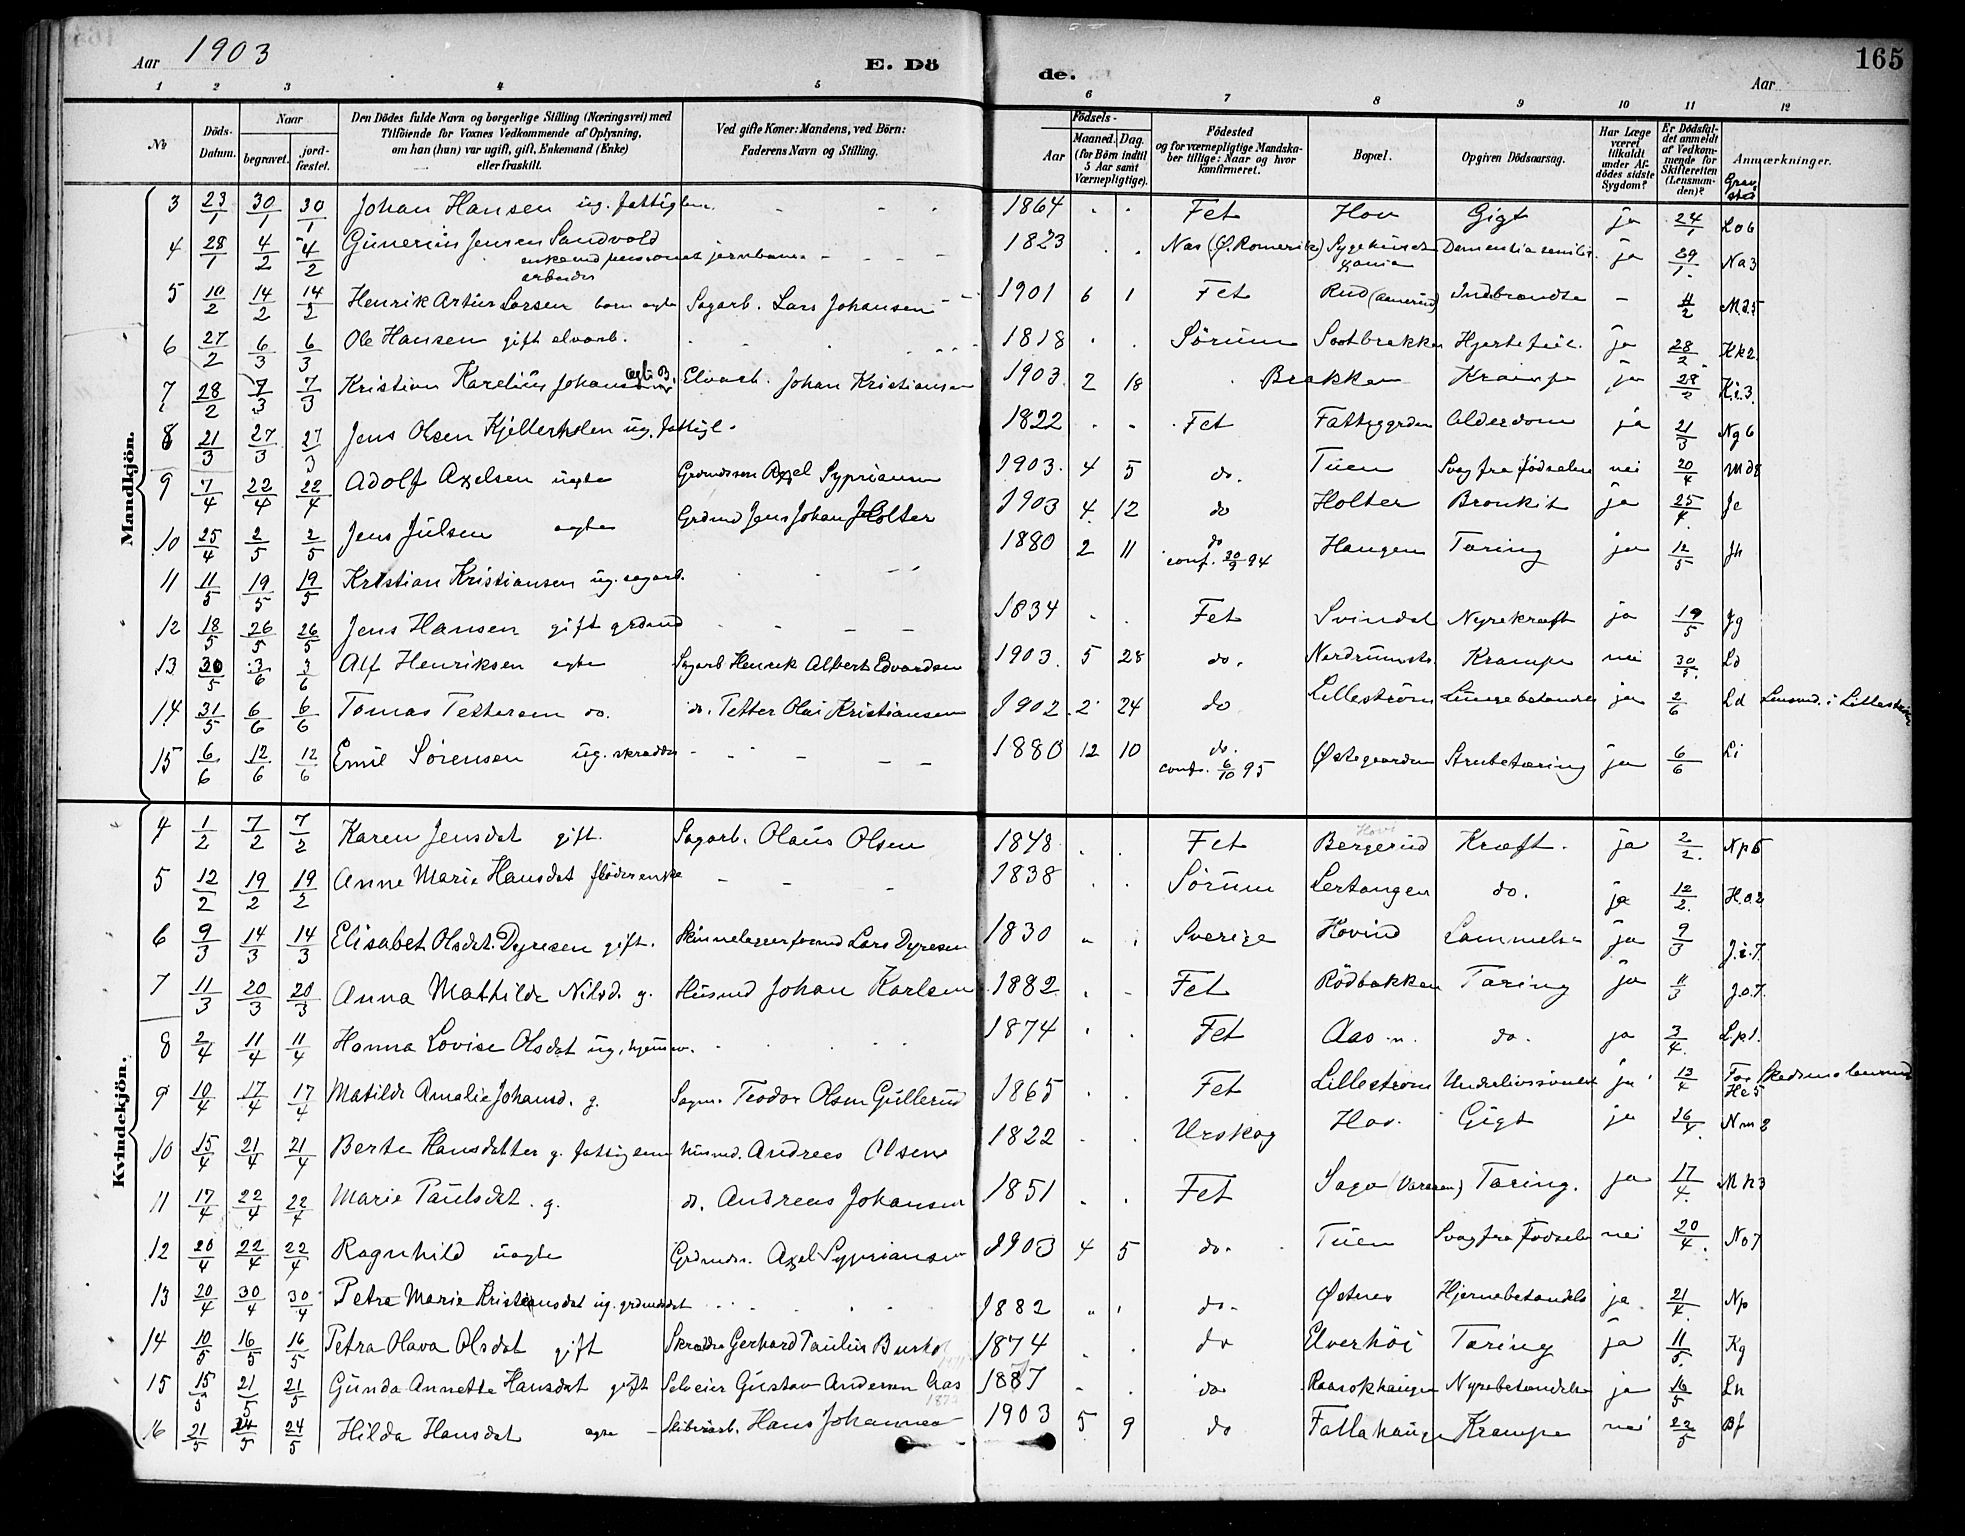 Aar 1903 E. Döde. Aar 165
1 2 3 4 5 6 7 8 9 10 11 12
No Döds-Datum. Naar begravet. jordfæstet. Den Dödes fulde Navn og borgerlige Stilling (Næringsvei) med Tilföiende for Voxnes Vedkommende af Oplysning, om han (hun) var ugift, gift, Enkemand (Enke) eller fraskilt. Ved gifte Koner: Mandens, ved Börn: Faderens Navn og Stilling. Födsels- Aar Maaned. Dag. (for Börn indtil 5 Aar samt Værnepligtige). Födested og for værnepligtige Mandskaber tillige: Naar og hvor konfirmeret. Bopæl. Opgiven Dödsaarsag. Har Læge været tilkaldt under Afdödes sidste Sygdom? Er Dödsfaldet anmeldt af Vedkommende for Skifteretten (Lensmanden)? Anmærkninger.
Mandkjön.
3 23/1 30/1 30/1 Johan Hansen ug. fattiglem 1864 Fet Hou Gigt ja 24/1 Lo6
4 28/1 4/2 4/2 Gunerius Jensen Sandvold enkemd pensionert jernban. arbeider 1823 Nas (Ø. Romerike) Sygehuset Kania Dementia senilis ja 29/1 Na3
5 10/2 14/2 14/2 Henrik Artur Larsen barn agte Sagarb. Lars Johansen 1901 6 1 Fet Rud (Aamerud) Indbrændte - 11/2 Md5
6 27/2 6/3 6/3 Ole Hansen gift elvarb. 1818 Sørum Sootbrakken Hjertefeil ja 28/2 Kk2
7 28/2 7/3 7/3 Kristian Karelius Johansen agte B. Elvarb. Johan Kristiansen 1903 2 18 Brakken Krampe ja 28/2 Ki3.
8 21/3 27/3 27/3 Jens Olsen Kjellerholen ug. fattigl. 1822 Fet Fattiggrden Alderdom ja 21/3 Ng6
9 7/4 22/4 22/4 Adolf Axelsen uagte Grdmdssøn Axel Syprianson 1903 4 5 do. Tuen Svag fra fødselen nei 20/4 Md8
10 25/4 2/5 2/5 Jens Julsen agte Grdmd Jens Johan Holter 1903 4 12 do Holter Bronkit ja 25/4 Je
11 11/5 19/5 19/5 Kristian Kristiansen ug. sagarb. 1880 2 11 do conf. 30/9 94 Haugen Taring ja 12/5 Jh
12 18/5 26/5 26/5 Jens Hansen gift grdmd 1834 Fet Svindal Nyrekræft ja 19/5 Jg
13 30/5 3/6 3/6 Alf Henriksen agte Sagarb Henrik Albert Edvardsen 1903 5 28 do. Nordrumsts. Krampe nei 30/5 Ld
14 31/5 6/6 6/6 Tomas Tettersen do. do. Tetter Olai Kristiansen 1902 2 24 do Lillestrøm Lungebetændelse ja 2/6 Ld Lensmd. i Lillestrøm
15 6/6 12/6 12/6 Emil Sørensen ug. skrædder 1880 12 10 do. conf. 6/10 95 Østegaarden Strubetæring ja 6/6 Li
Kvindekjön.
4 1/2 7/2 7/2 Karen Jensdat gift. Sagarb. Olaus Olsen 1848 Fet Bergerud Kræft. ja 2/2 Np5
5 12/2 19/2 19/2 Anne Marie Hansdat fløderenke 1838 Sørum Lertangen do. ja 12/2 H.a.2
6 9/3 14/3 14/3 Elisabet Olsdat. Dyresen gift. Skinneleggerformd Lars Dyresen 1830 Sverige Hovind Lammelse ja 9/3 J.i.7.
7 11/3 20/3 20/3 Anna Mathilde Nilsd. g. Husmd Johan Karlsen 1882 Fet Rödbakken Taring ja 11/3 J.o.7.
8 2/4 11/4 11/4 Hanna Lovise Olsdat ug. hjemmev. 1874 Fet Aas n. do. ja 3/4 L.p.1.
9 10/4 17/4 17/4 Matilde Amalie Johansd. g. Sagm. Teodor Olsen Gullerud 1865 Fet Lillestrøm Underlivssvulst ja 13/4 He5 Skedsmo lensmd
10 15/4 21/4 21/4 Berte Hansdatter g. fattiglem Husmd. Andreas Olsen 1822 Urskog Hov. Gigt ja 16/4 Nm2
11 17/4 22/4 22/4 Marie Paulsdat. g. do. Andreas Johansen 1851 Fet Saga (Vararen) Taring. ja 17/4 Mh3
12 20/4 22/4 22/4 Ragnhild uagte Grdmds. Axel Syprianson 1903 4 5 do. Tuen Svag fra Fødselen nei 20/4 No7
13 20/4 30/4 30/4 Petra Marie Kristiansdat ug. grdmdsdat 1882 do. Østnes Hjernebetændelse ja. 21/4 Np
14 10/5 16/5 16/5 Petra Olava Olsdat gift Skrædder Gerhard Paulius Busko 1874 do Elverhöi Taring ja 11/5 Kg
15 15/5 21/5 21/5 Gunda Annette Hansdat gift Selveier Gustav Andersen Aas 1877 do Raasokhaugen Nyrebetændelse ja 16/5 Lh
16 21/5 24/5 24/5 Hilda Hansdat agte Sliberiarb. Hans Johannes 1903 5 9 do Fallahaugen Krampe nei 22/5 Bf